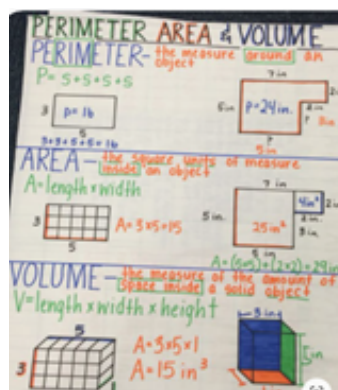 PERIMETER AREA & VOLUME
PERIMETER- the measure around an
object
P= 5+5+5+5
7 in
3
p=16
5
3+3+5+5=16
5in
p=24in.
2in
5in
AREA- the square units of measure
inside an object
A=length×width
7 in
3
5
A=3×5=15
5in
4in²
25in²
3in
5in
A=(5×5)+(2×2)=29in
VOLUME- the measure of the amount of
space inside a solid object
V=length×width×height
5
3
A=3×5×1
A=15 in³
3in
5in